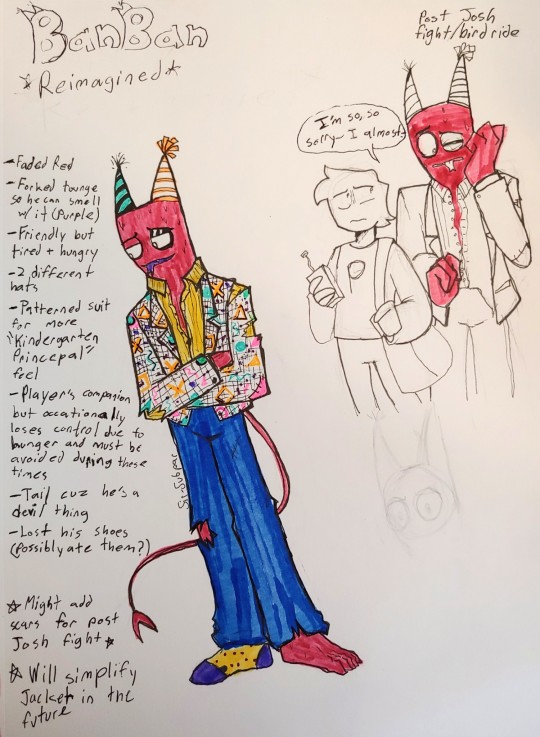 BanBan
*Reimagined*
Post Josh
fight/bird ride
I'm so, so
sorry- I almost-
-Faded Red
-Forked tounge
so he can smell
w/ it (purple)
-Friendly but
tired + hungry
-2 different
hats
-Patterned suit
for more
"Kindergarten
Princepal"
feel
-Player's companion
but occationally
loses control due to
hunger and must be
avoided during these
times
-Tail cuz he's a
devil thing
-Lost his shoes
(possibly ate them?)
☆ Might add
scars for post
Josh fight ☆
☆ Will simplify
Jacket in the
future
Sir-Subpar